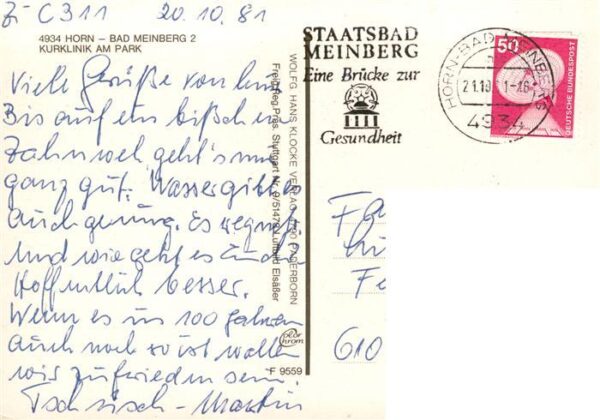 Zi C311 20.10.81
4934 HORN – BAD MEINBERG 2
KURKLINIK AM PARK
Viele Grüße von hier
Bis auf ein bißchen
Zahnweh geht's mir
ganz gut. Wasser gibt es
auch genung. Es regnet.
Und wie geht es Euch
Hoffentlich besser.
Wenn es in 100 Jahren
auch noch so ist wollen
wir zufrieden sein.
Tschisch - Martin
WOLFG. HANS KLOCKE VERLAG PADERBORN
Freig. Reg. Präs. Stuttgart Nr. Luftbild Elsäßer
color chrom
F 9559
STAATSBAD
MEINBERG
Eine Brücke zur
Gesundheit
HORN-BAD MEINBERG
21.10.
4934
50
DEUTSCHE BUNDESPOST
Fa
Fe
610